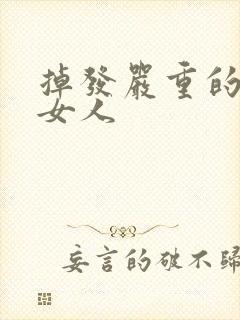 掉發嚴重的
女人
妄言的破不歸